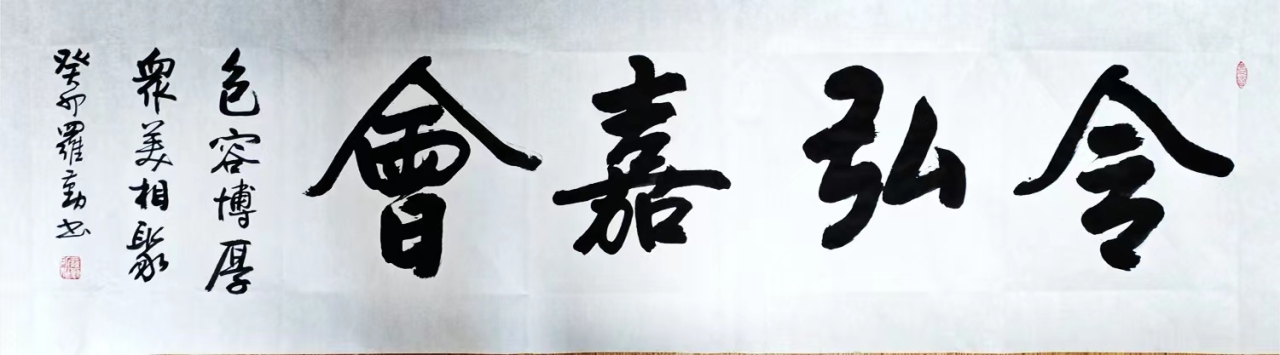 含弘嘉會
包容博厚
衆美相聚
癸卯羅書